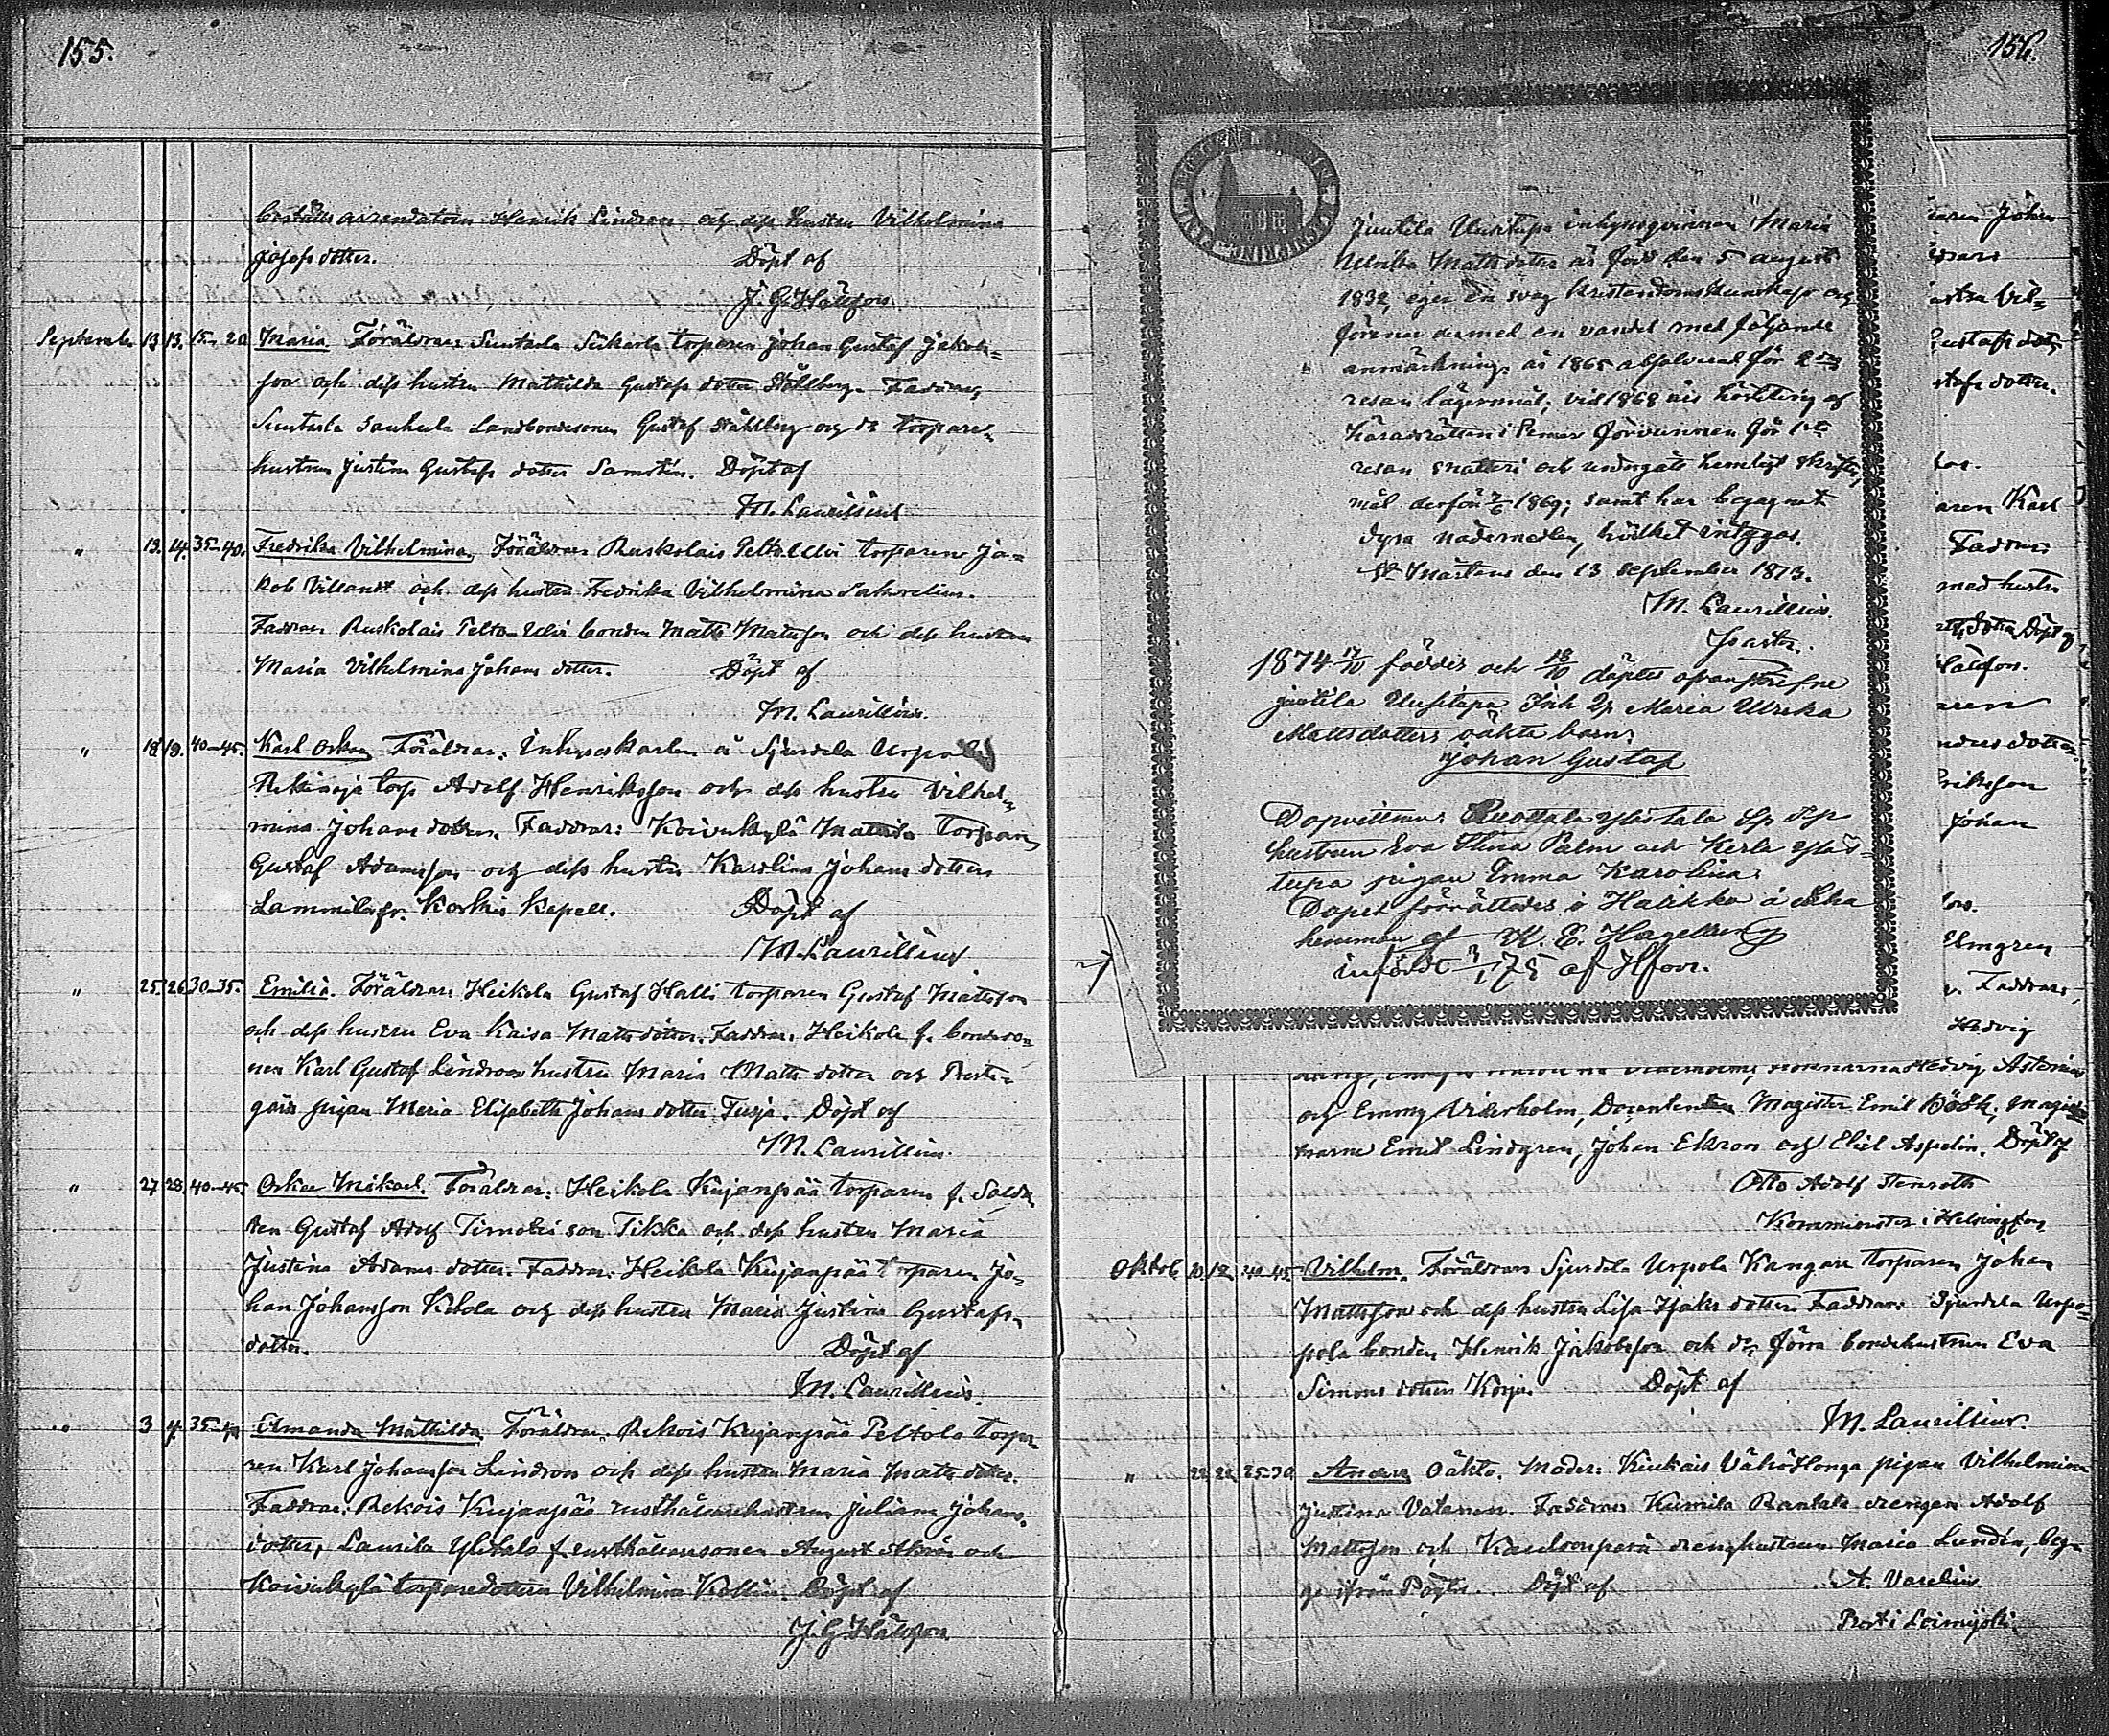 155.
arrendatorn Henrik Lindroos och dess hustru Vilhelmina
Josefs dotter. Döpt af
J. G. Hälsfors
September 13. 13. 15-20 Maria Föräldrar Suntarla torparen Johan Gustaf Jakobs-
son och dess hustru Mathilda Gustafs dotter Ståhlberg. Faddrar,
Suntarla Landbondesonen Gustaf Ståhlberg och torpare-
hustrun Justina Gustafs dotter Samstén. Döpt af
M. Laurillius
" 13. 14. 35-40. Fredrika Vilhelmina, Föräldrar Ruskolais Pelto Ulvi torparen Ja-
kob Villandt och dess hustru Fredrika Vilhelmina
Faddrar Ruskolais Pelto-Ulvi bonden Matts Mattsson och dess hustru
Maria Vilhelmina Johans dotter. Döpt af
M. Laurillius.
" 18 19. 40-45. Karl Oskar Föräldrar: Inhyseskarlen å Sjurdela Urpola
torp Adolf Henriksson och dess hustru Vilhel-
mina Johans dotter. Faddrar: Koivukylä Mattila torparen
Gustaf Adamsson och dess hustru Karolina Johans dotter
Koskis Kapell. Döpt af
M. Laurillius
" 25. 26. 30-35. Emilia. Föräldrar: Heikola Gustaf Halli torparen Gustaf Mattsson
och dess hustru Eva Kaisa Matts dotter. Faddrar: Heikola f. bondeso-
nen Karl Gustaf Lindroos hustru Maria Matts dotter och Prest-
gårds pigan Maria Elisabeth Johans dotter Turja. Döpt af
M. Laurillius.
" 27 28. 40-45. Oskar Mikael. Föräldrar: Heikola Kujanpää torparen f. Solda-
ten Gustaf Adolf Timoteison Tikka och dess hustru Maria
Justina Adams dotter. Faddrar: Heikola Kujanpää torparen Jo-
han Johansson och dess hustru Maria Justina Gustafs-
dotter. Döpt af
M. Laurillius.
" 3 4. 35-40 Amanda Mathilda, Föräldrar: Rekois Kujanpää Peltola torpa-
ren Karl Johansson Lindroos och dess hustru Maria Matts dotter.
Faddrar: Rekois Kujanpää rusthållarehustrun Juliana Johans
dotter, Laurila Ylitalo f. rusthållaresonen August och
Koivukylä torparedottern Vilhelmina Kollin. Döpt af
J. G. Hälsfors
156.
Juutila Uusitupa inhysesqvinnan Maria
Ulrika Matts dotter är född den 5 augusti
1832, eger en svag kristendomskunskap och
förenar dermed en vandel med följande
anmärkning: år 1865 absolverad för 2dra
resan lägersmål; vid 1868 års hösteting af
Häradsrätten i Pemar förvunnen för 1sta
resan snatteri och undergått hemligt skrifter
mål derför 1869; samt har begagnat
dyra nådemedlen, hvilket intygas.
St Mårtens den 13 September 1873.
M. Laurillius.
Pastor.
1874 17/10 föddes och 18/10 döptes ofvanskrefne
Juutila Uusitupa Inh Qv Maria Ulrika
Mattsdotters oäkta barn,
Johan Gustaf
Dopvittnen:
hustrun Eva Stina Palm och Kerla Ylis-
tupa pigan Emma Karolina.
Dopet förrättades i Halikko å
hemman af K. E. Hagelberg
infördt 75 af Hfors.
aren Johan
Vil-
Gustafs dot-
stafs dotter.
fors.
aren Karl
Faddrar
med hustru
Döpt af
Hälsfors.
aren
dotter
Eriksson
Johan
fors.
Elmgren
Faddrar,
Hedvig
Hedvig
och Emmy Widerholm, Docenten Magister Emil Böök, magist-
rarne Emil Lindgren, Johan Ekroos och Eliel Aspelin. Döpt af
Otto Adolf Stenroth
Komminister i Helsingfors
Oktob. 10. 12. 40-45 Vilhelm. Föräldrar Sjurdela Urpola Kangare torparen Johan
Mattsson och dess hustru Lisa Isaks dotter. Faddrar: Sjurdela Urpo-
pola bonden Henrik Jakobsson och d:o förra bondehustrun Eva
Simons dotter Korja. Döpt af
M. Laurillius.
" 22. 22. 25-30 Anders Oäkta. Moder: Kiukais Vähä Honga pigan Vilhelmina
Justina Vatanen. Faddrar Kumila Rantala drengen Adolf
Mattsson och Kauloonperä drenghustrun Maria Lundén, beg-
ge ifrån Pöytis. Döpt af A. Varelius
Past. i Loimijoki.